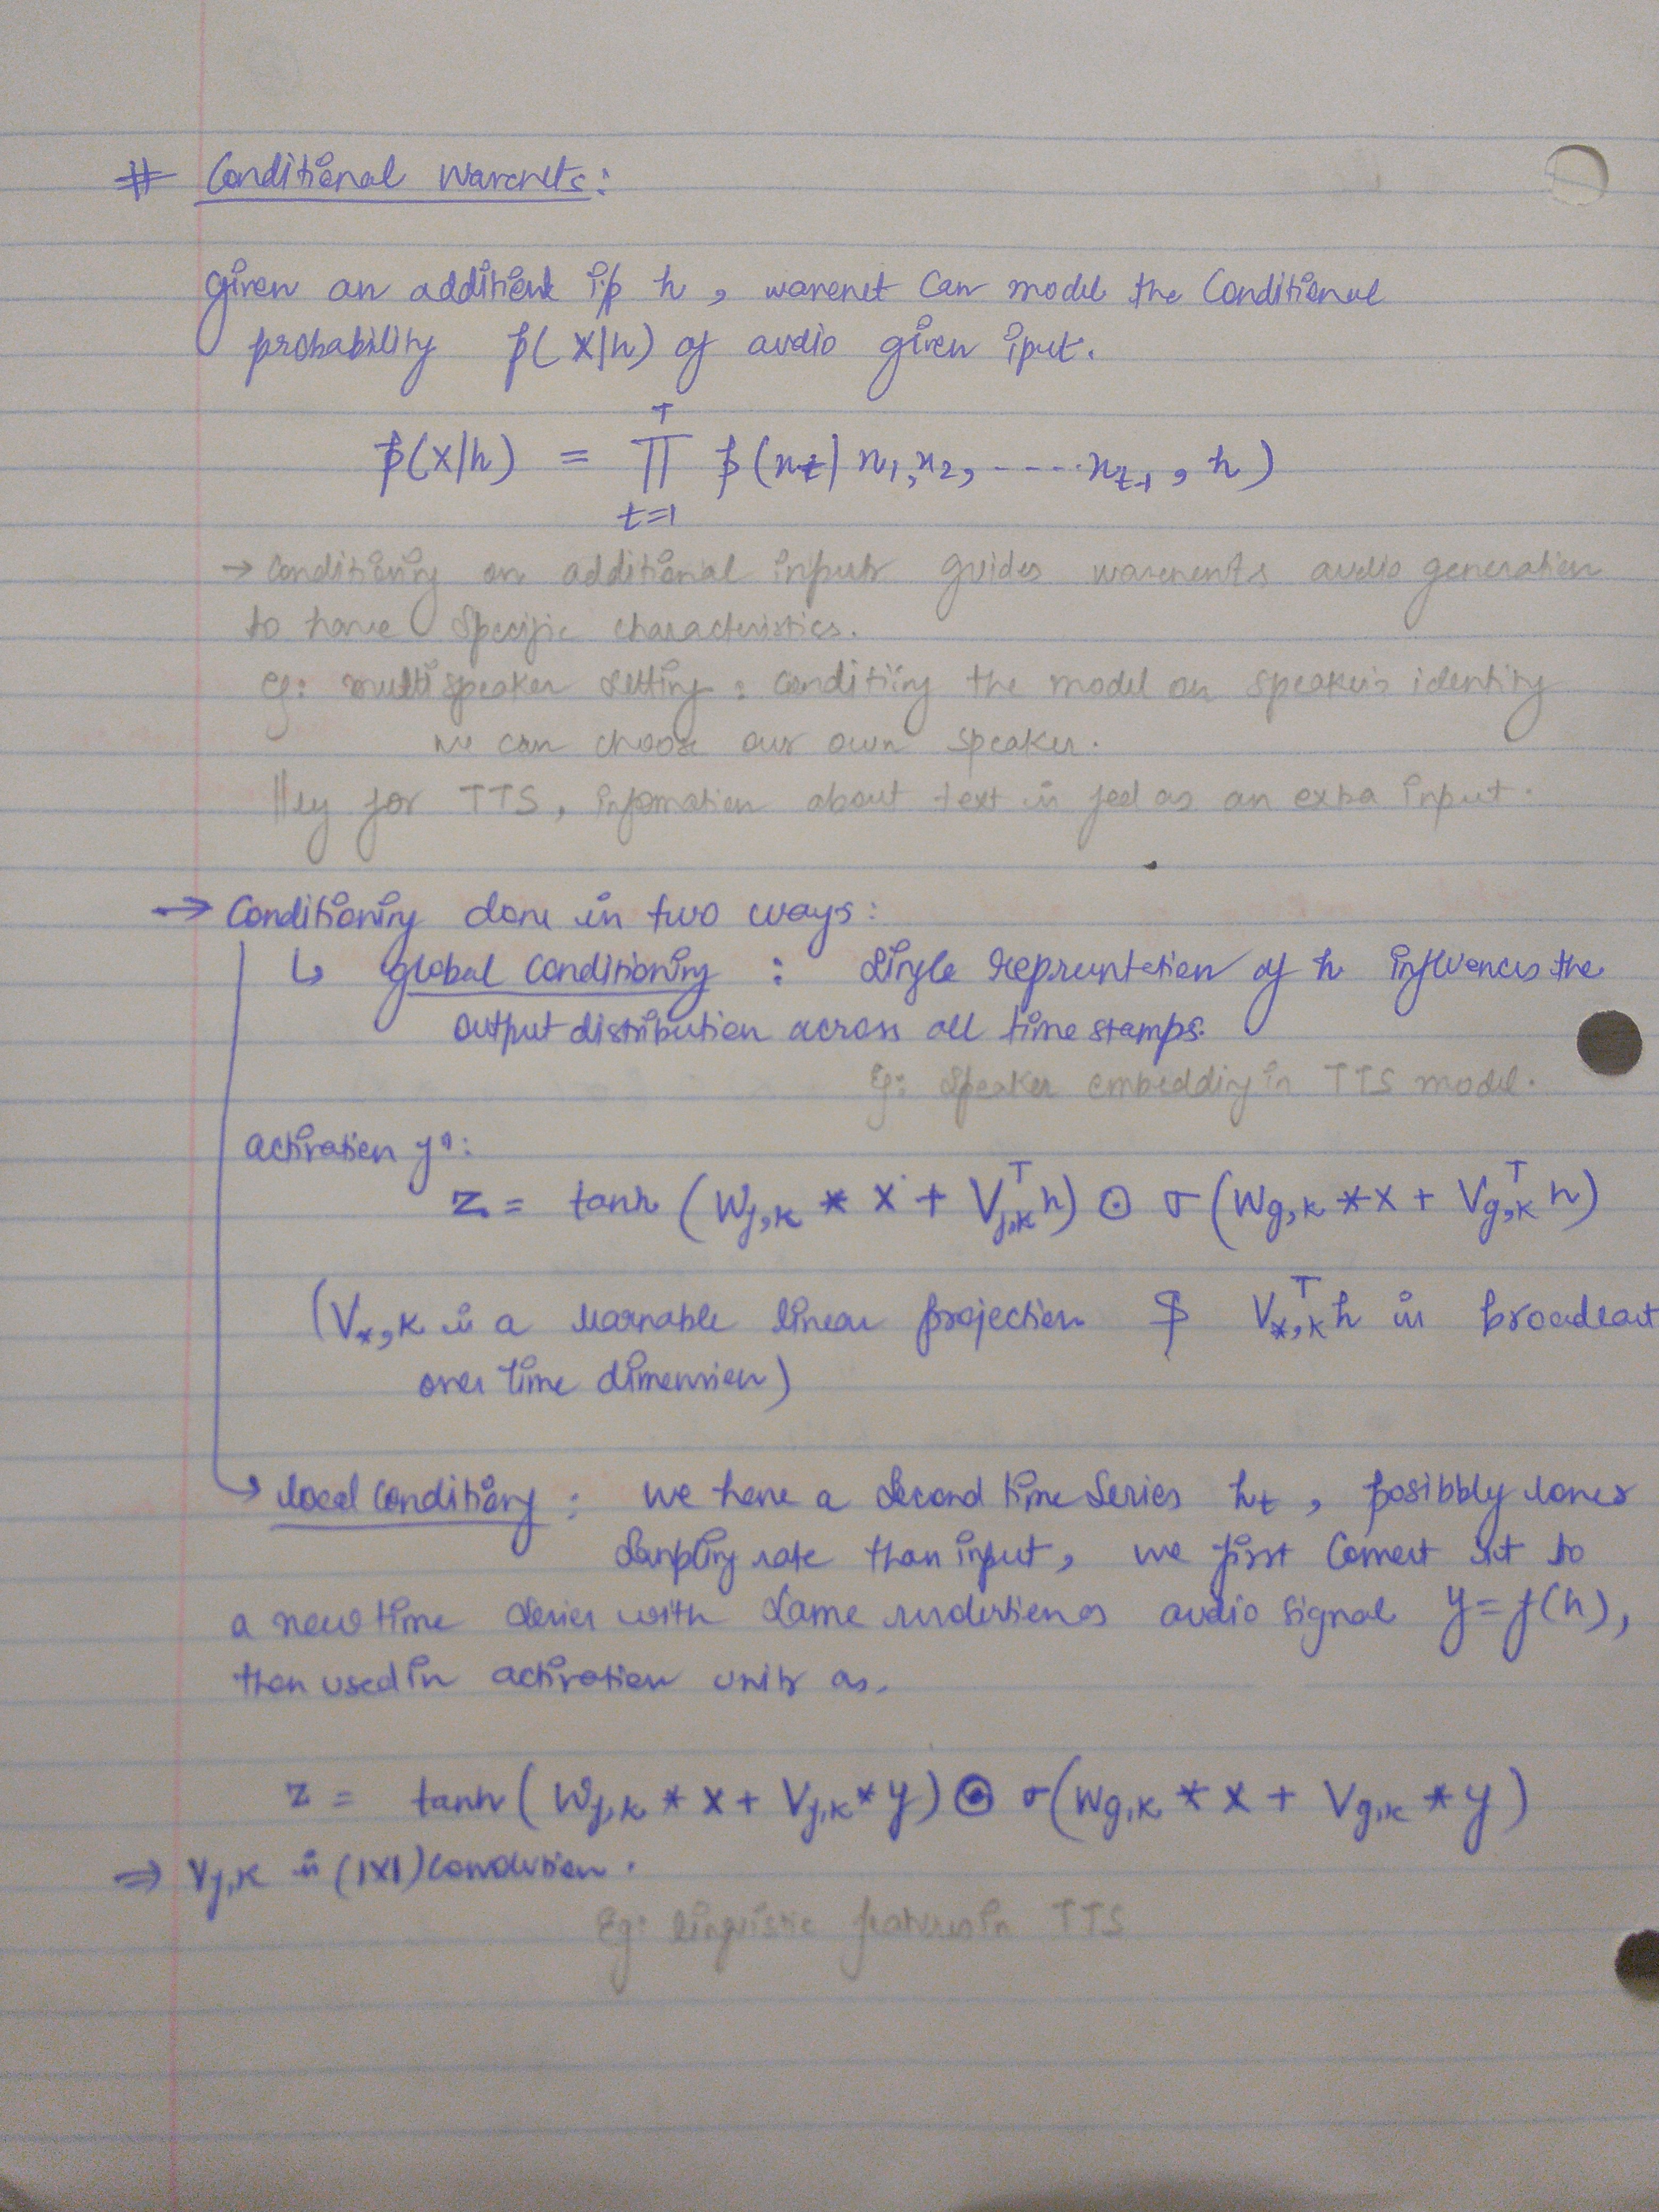 # Conditional Wavenets:
Given an additional i/p h, wavenet can model the conditional
probability p(x|h) of audio given iput.
p(x|h) = ∏_{t=1}^{T} p(x_t | x_1, x_2, ----- x_{t-1}, h)
→ Conditioning on additional inputs guides wavenents audio generation
to have specific characteristics.
eg: multispeaker setting: conditiing the model on speaker's identity
we can choose our own speaker.
||ly for TTS, infomation about text is feed as an extra input.
→ Conditioning done in two ways:
↳ global conditioning : Single representation of h influences the
output distribution across all time stamps.
Eg: Speaker embedding in TTS model.
activation fⁿ:
z = tanh (W_{f,k} * x + V_{f,k}^T h) ⊙ σ (W_{g,k} * x + V_{g,k}^T h)
(V_{*,k} is a learnable linear projection & V_{*,k}^T h is broadcast
over time dimension)
↳ local conditiong : we have a second time series h_t, posibbly lower
sampling rate than input, we first convert it to
a new time series with same resolution as audio signal y = f(h),
then used in activation units as,
z = tanh ( W_{f,k} * x + V_{f,k} * y) ⊙ σ(W_{g,k} * x + V_{g,k} * y)
⇒ V_{f,k} is (1x1) convolution.
Eg: linguistic features in TTS